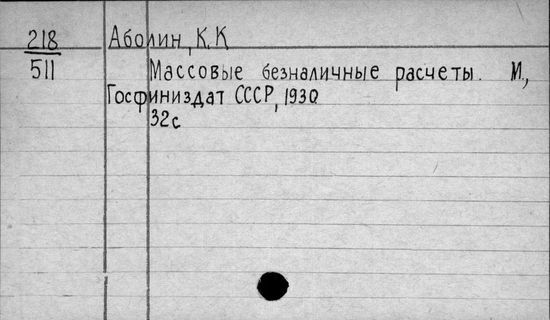 218 Аболин, К. К
511 Массовые безналичные расчеты. М.,
Госфиниздат СССР, 1930
32с